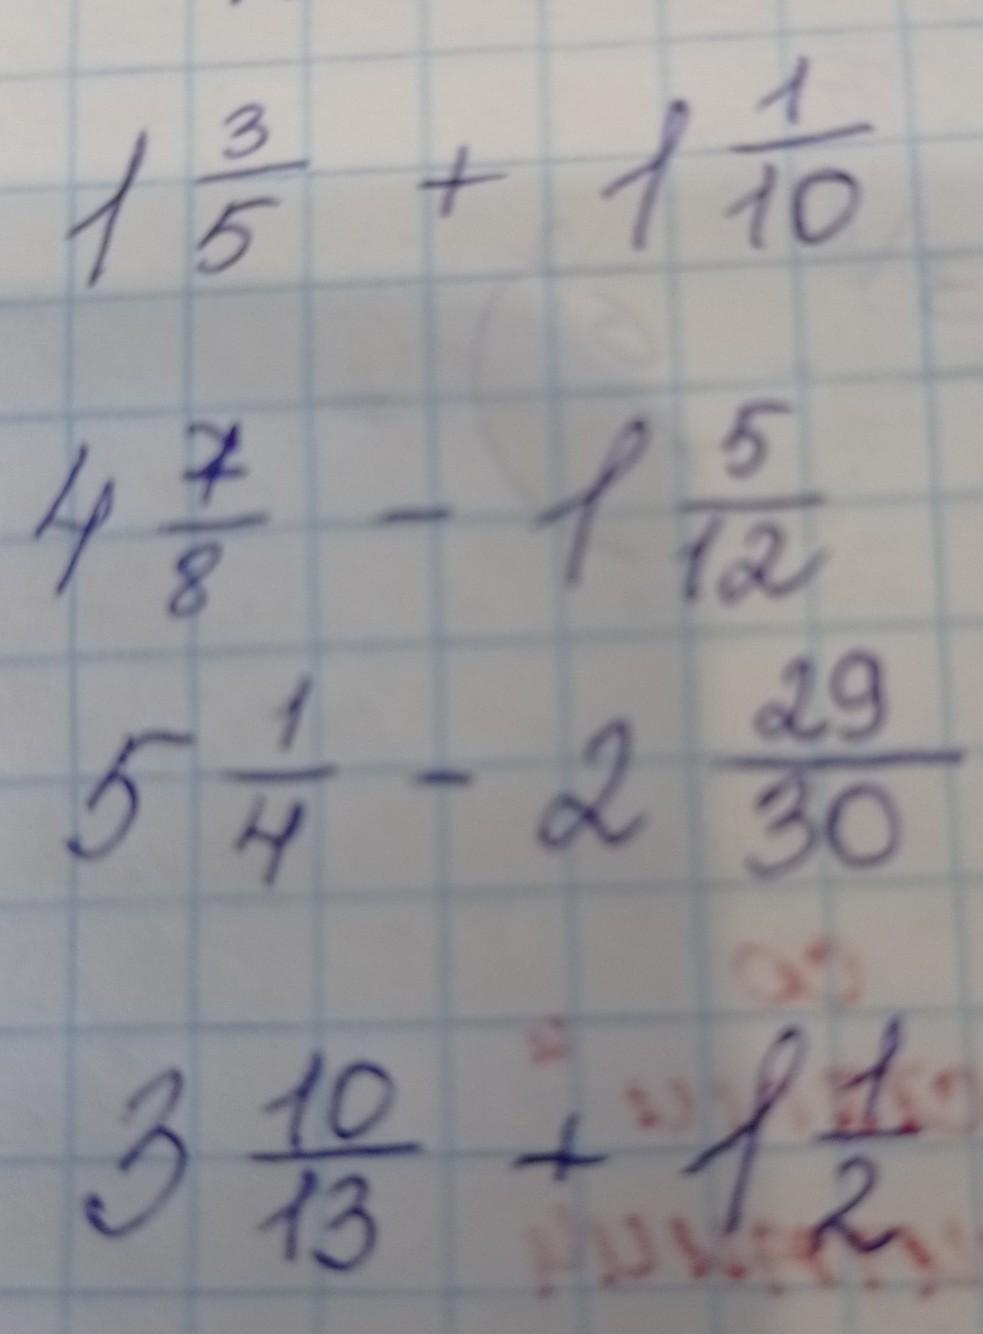 1 3/5 + 1 1/10
4 7/8 - 1 5/12
5 1/4 - 2 29/30
3 10/13 + 1 1/2